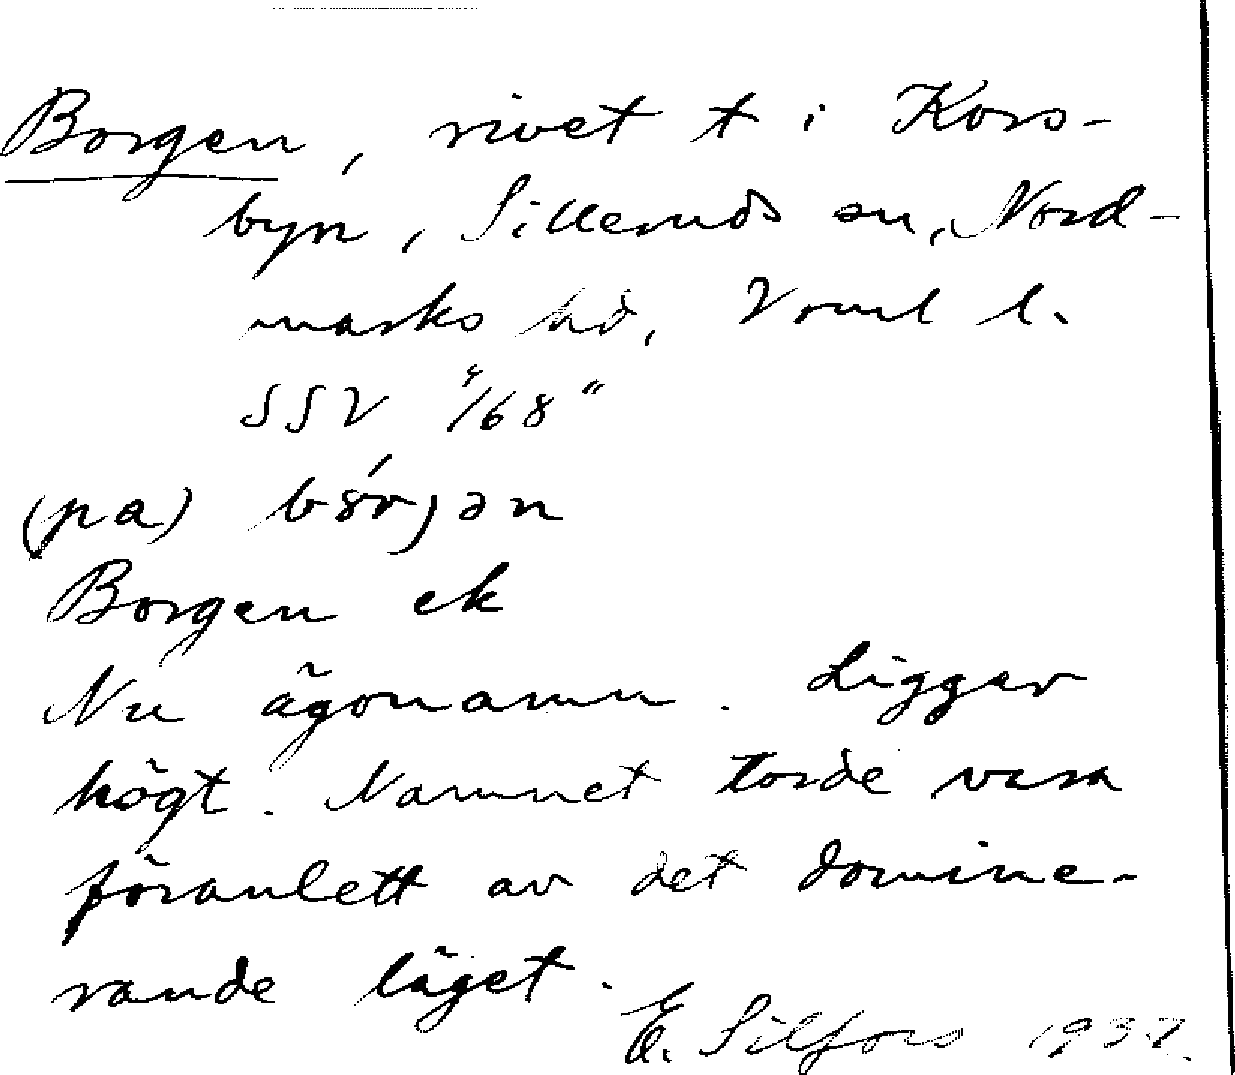 Borgen, rivet t i Kors-
byn, Silleruds sn, Nord-
marks hd, Vrml l.
SSV 4/68"
(pa)
Borgen ek
Nu ägonamn. Ligger
högt. Namnet torde vara
föranlett av det domine-
rande läget.
E. Silfors 1937.